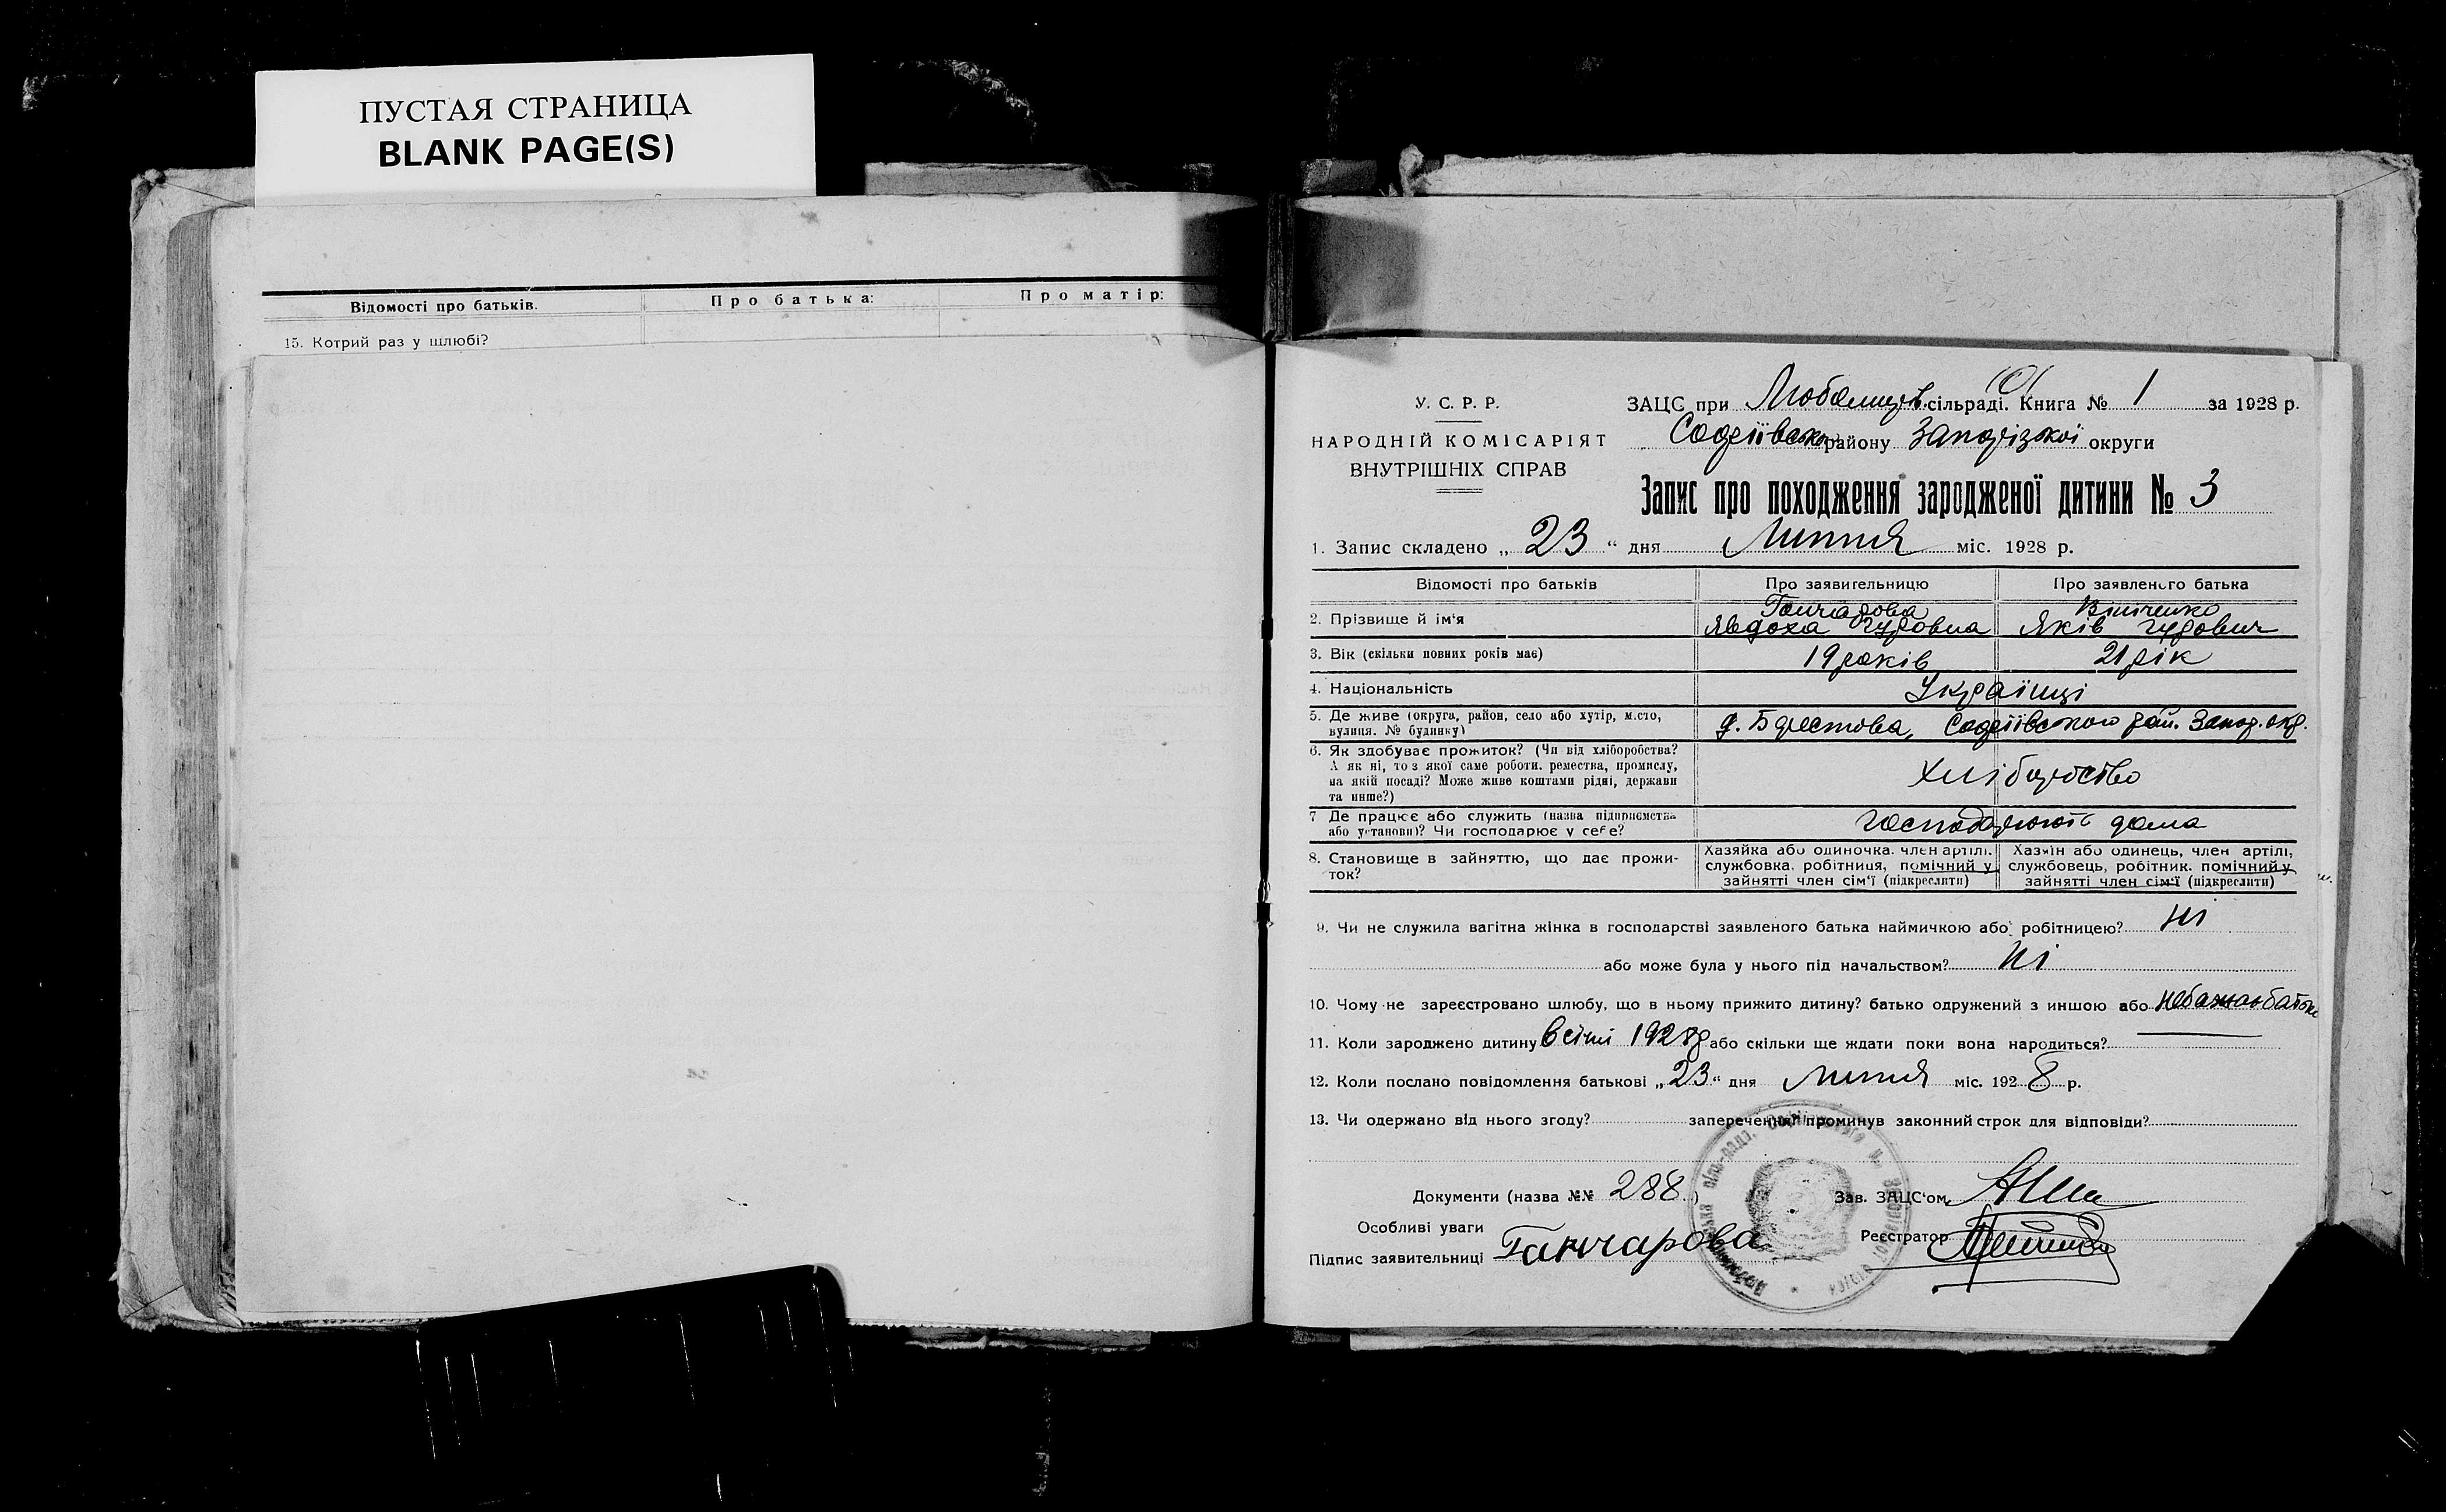 ПУСТАЯ СТРАНИЦА
BLANK PAGE(S)
Відомості про батьків.
Про батька:
Про матір:
15. Котрий раз у шлюбі?
У. С. Р. Р.
НАРОДНІЙ КОМІСАРІЯТ
ВНУТРІШНІХ СПРАВ
ЗАЦС при сільраді. Книга № 1 за 1928 р.
району Запорізької округи
Запис про походження зародженої дитини № 3
1. Запис складено „ 23 “ дня Липня міс. 1928 р.
Відомості про батьків
Про заявительницю
Про заявленого батька
2. Прізвище й ім'я
Ганчарова
Явдоха Гуровна
Яків Гурович
3. Вік (скільки повних років має)
19 років
21 рік
4. Національність
Українці
5. Де живе (округа, район, село або хутір, місто,
вулиця. № будинку)
Софіївского рай. Запор. окр.
6. Як здобуває прожиток? (Чи від хліборобства?
А як ні, то з якої саме роботи. ремества, промислу,
на якій посаді? Може живе коштами рідні, держави
та инше?)
7 Де працює або служить (назва підприємства
або установи)? Чи господарює у себе?
господарюють дома
8. Становище в зайняттю, що дає прожи-
ток?
Хазяйка або одиночка. член артілі.
службовка. робітниця, помічний у
зайнятті член сім'ї (підкреслити)
Хазяїн або одинець, член артілі,
службовець, робітник. помічний у
зайнятті член сім'ї (підкреслити)
9. Чи не служила вагітна жінка в господарстві заявленого батька наймичкою або робітницею? ні
або може була у нього під начальством? ні
10. Чому не зареєстровано шлюбу, що в ньому прижито дитину? батько одружений з иншою або
11. Коли зароджено дитину в січні 1928 р або скільки ще ждати поки вона народиться?
12. Коли послано повідомлення батькові „ 23 “ дня Липня міс. 1928 р.
13. Чи одержано від нього згоду? заперечення? проминув законний строк для відповіди?
Документи (назва №№ 288.)
Зав. ЗАЦС'ом
Особливі уваги
Реєстратор
Підпис заявительниці Ганчарова